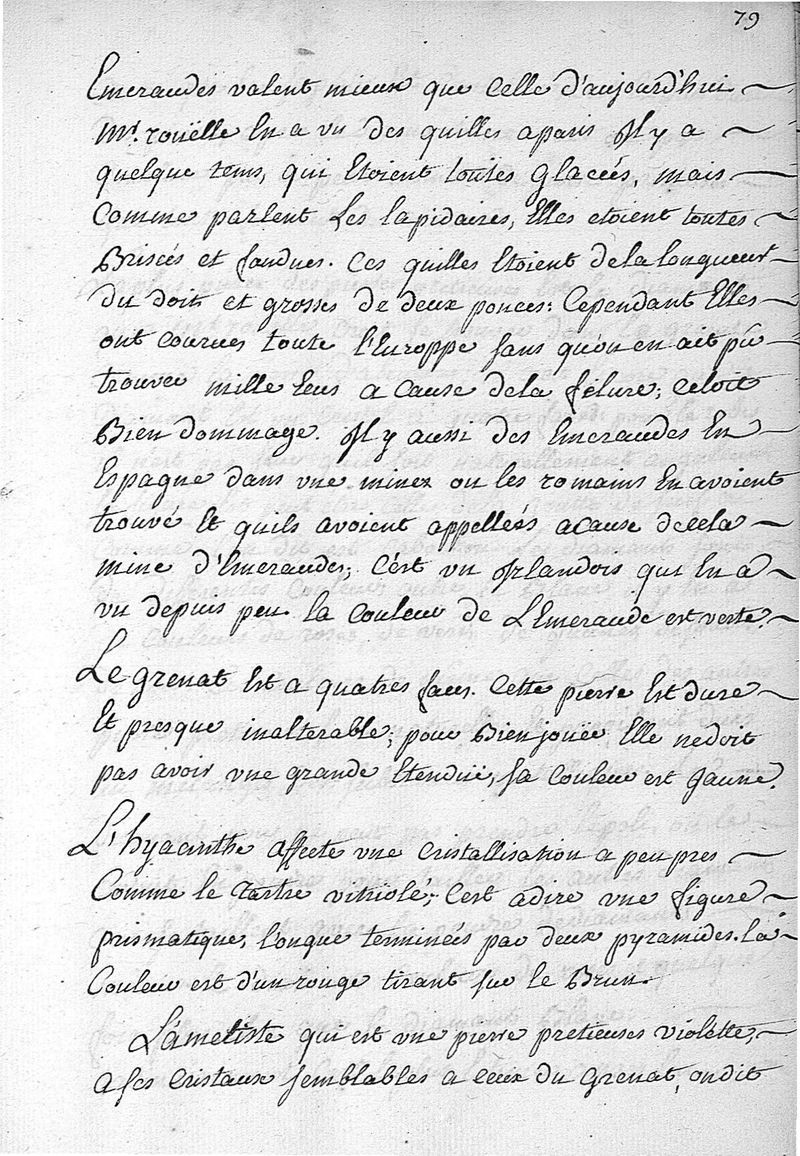 79
Emeraudes valent mieux que celle d'aujourd'hui
Mr. rouëlle En a vu des quilles a paris Il y a
quelque tems, qui Etoient toutes glacées, mais
Comme parlent Les lapidaires, Elles etoient toutes
Brisées et fandues. Ces quilles Etoient de la longueur
du doit et grosses de deux pouces: Cependant Elles
ont courues toute l'Europpe sans qu'on en ait pû
trouver mille Ecus a cause de la félure; Cetoit
Bien dommage. Il y aussi des Emeraudes En
Espagne dans une minez ou les romains En avoient
trouvé Et quils avoient appelleés a cause de cela
mine d'Emeraudes; C'est un Irlandois qui En a
vu depuis peu. la Couleur de L'Emeraude est verte.
Le grenat Est a quatres faces. Cette pierre Est dure
Et presque inalterable, pour Bien jouër Elle ne doit
pas avoir une grande Etenduë, sa Couleur est jaune.
L'hyacinthe affecte une cristallisation a peu pres
Comme le Tartre vitriolé; C'est a dire une figure
prismatique, longue terminées par deux pyramides. la
Couleur est d'un rouge tirant sur le Brun.
L'ametiste qui est une pierre pretieuses violette,
a ses Cristaux semblables a ceux du grenat, on dit